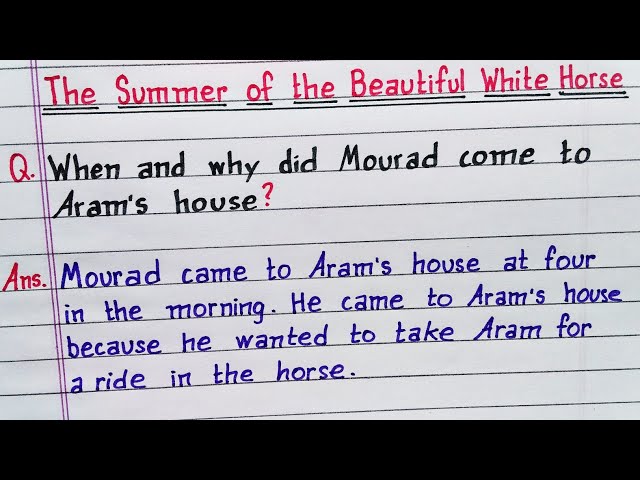 The Summer of the Beautiful White Horse
Q. When and why did Mourad come to
Aram's house?
Ans. Mourad came to Aram's house at four
in the morning. He came to Aram's house
because he wanted to take Aram for
a ride in the horse.